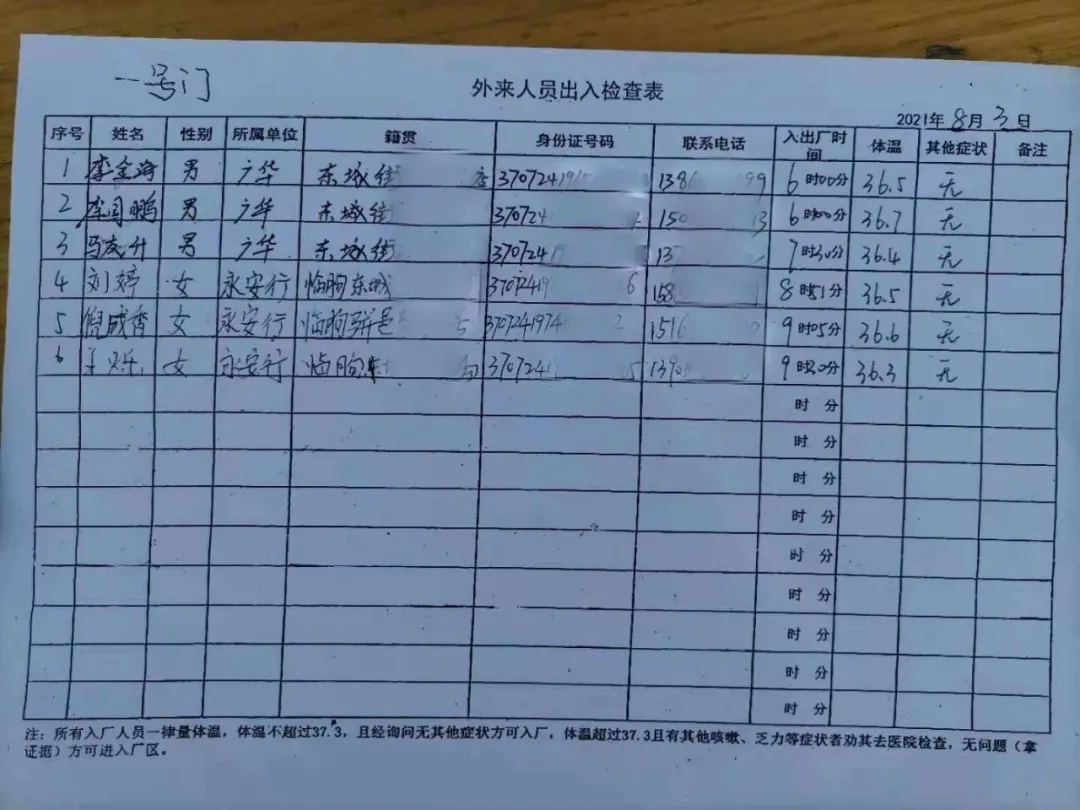 一号门
外来人员出入检查表
2021年 8月 3日
序号 姓名 性别 所属单位 籍贯 身份证号码 联系电话 入出厂时间 体温 其他症状 备注
1 李金海 男 广华 东城街 3707241 1386 99 6时00分 36.5 无
2 李闰鹏 男 广华 东城街 370724 150 13 6时00分 36.7 无
3 马成升 男 广华 东城街 3707241 13 7时30分 36.4 无
4 刘婷 女 永安行 临朐东城 37072419 6 158 8时51分 36.5 无
5 倪成香 女 永安行 临朐骈邑 号 3707241974 2 1516 9时05分 36.6 无
6 女 永安行 临朐东 3707241 5 1390 9时20分 36.3 无
时 分
时 分
时 分
时 分
时 分
时 分
时 分
时 分
时 分
注：所有入厂人员一律量体温，体温不超过37.3，且经询问无其他症状方可入厂，体温超过37.3且有其他咳嗽、乏力等症状者劝其去医院检查，无问题（拿
证据）方可进入厂区。